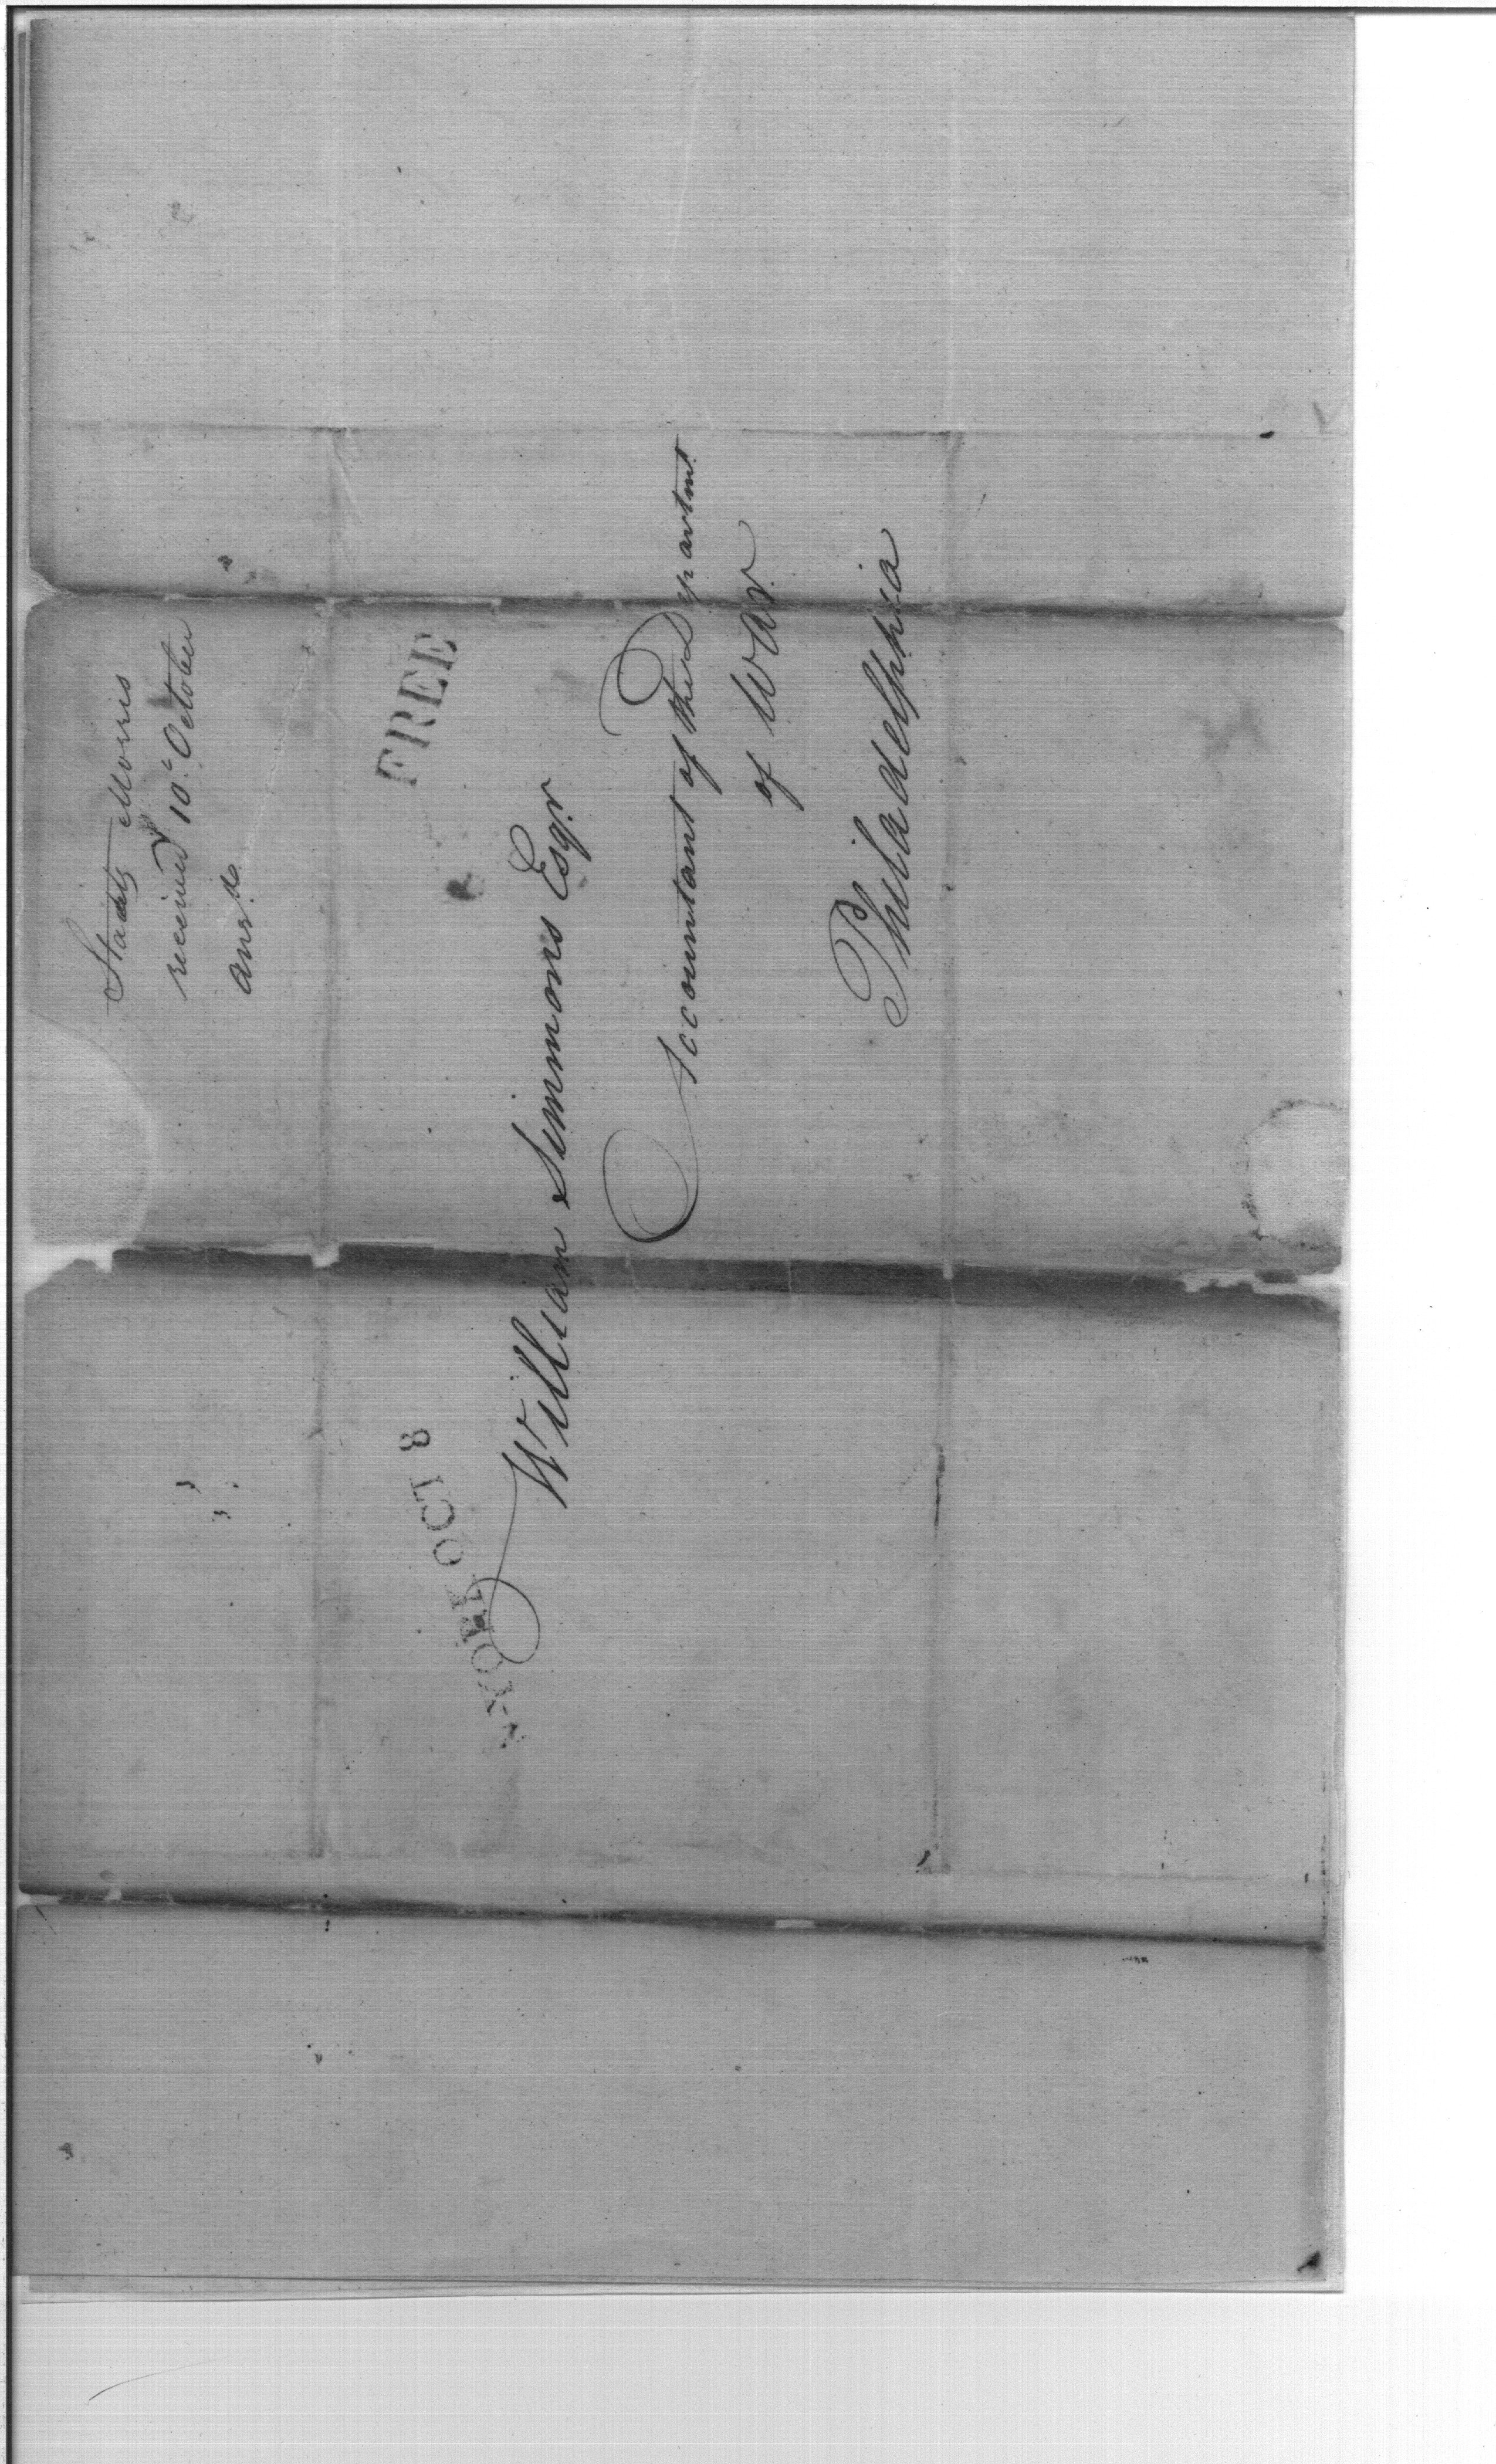 Staats Morris
received 10th October
ansd. do
FREE
N-YORK OCT 8
William Simmons Esqr.
Accountant of the Departmt.
of War
Philadelphia